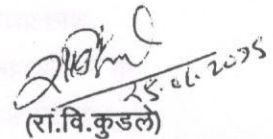 25.01.2025
(रां.वि.कुडले)